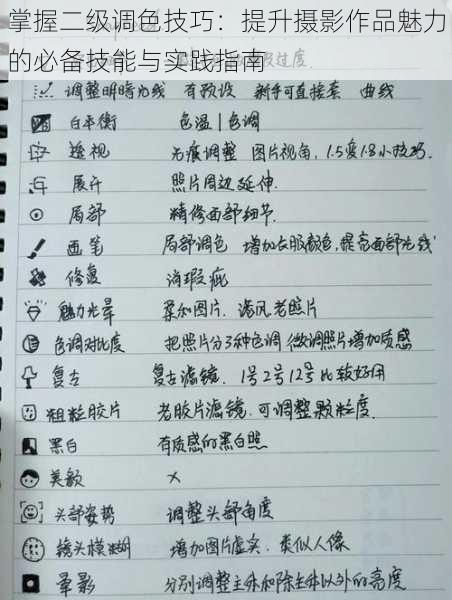 掌握二级调色技巧：提升摄影作品魅力
的必备技能与实践指南
过度
调整明暗光线 有预设 新手可直接套 曲线
白平衡 色温|色调
透视 无痕调整 图片视角，1.5变1.8小技巧.
展开 照片周边延伸.
局部 精修面部细节.
画笔 局部调色 增加衣服颜色,提亮面部光线
修复 消瑕疵
魅力光晕 柔和图片. 港风老照片
色调对比度 把照片分3种色调 微调照片增加质感
复古 复古滤镜. 1号2号12号比较好用
粗粒胶片 老胶片滤镜.可调整颗粒度.
黑白 有质感的黑白照
美颜 ×
头部姿势 调整头部角度
镜头模糊 增加图片虚实. 类似人像
晕影 分别调整主体和除主体以外的亮度